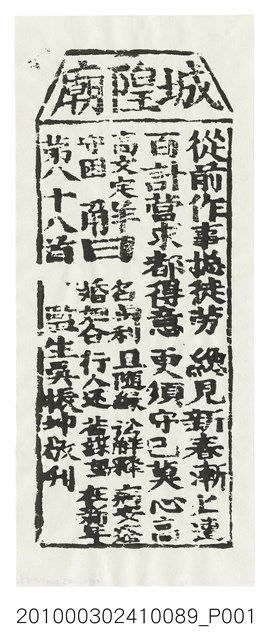 城隍廟
從前作事總徒勞 纔見新春漸上運
百計營求都得意 更須守己莫心高
解曰 名與利 且隨緣 訟解釋 病安痊
婚和合 行人還 若謀望 在新年
第八十八首
生吳振坤敬刊
201000302410089_P001